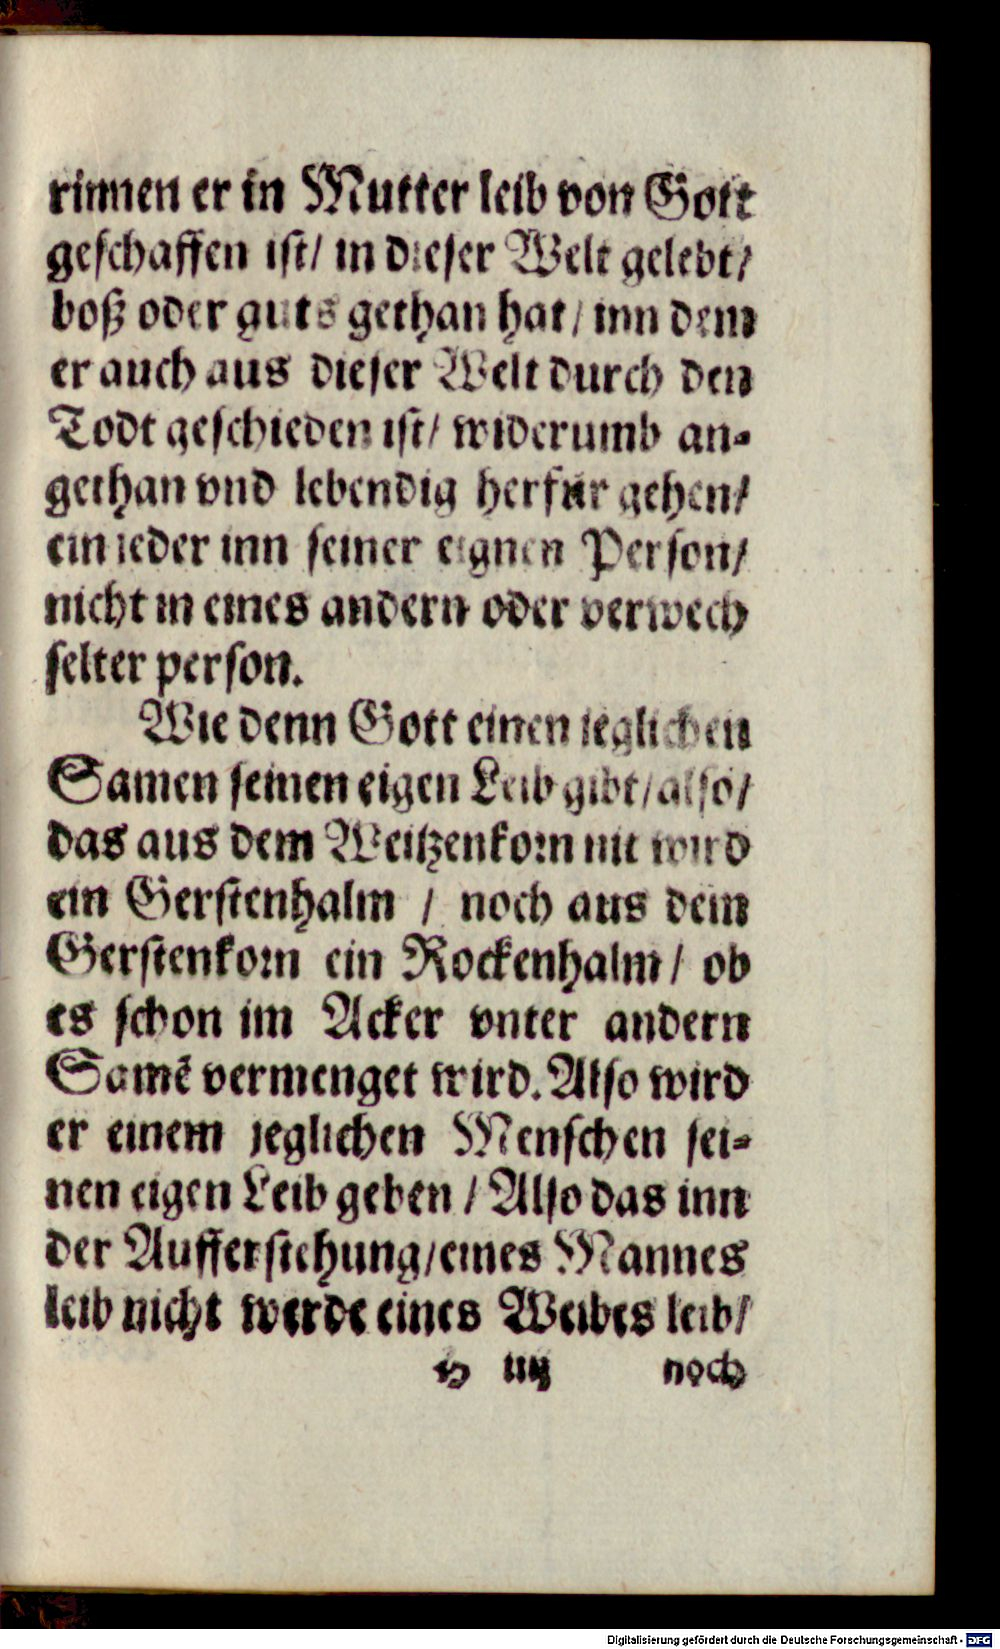 rinnen er in Mutter leib von Gott
geschaffen ist/ in dieser Welt gelebt/
boß oder guts gethan hat/ inn dem
er auch aus dieser Welt durch den
Todt geschieden ist/ widerumb an-
gethan vnd lebendig herfür gehen/
ein ieder inn seiner eignen Person/
nicht in eines andern oder verwech
selter person.
Wie denn Gott einen ieglichen
Samen seinen eigen Leib gibt/ also/
das aus dem Weitzenkorn nit wird
ein Gerstenhalm / noch aus dem
Gerstenkorn ein Rockenhalm/ ob
es schon im Acker vnter andern
Samē vermenget wird. Also wird
er einem jeglichen Menschen sei-
nen eigen Leib geben / Also das inn
der Aufferstehung/ eines Mannes
leib nicht werde eines Weibes leib/
iiij noch
Digitalisierung gefördert durch die Deutsche Forschungsgemeinschaft - DFG